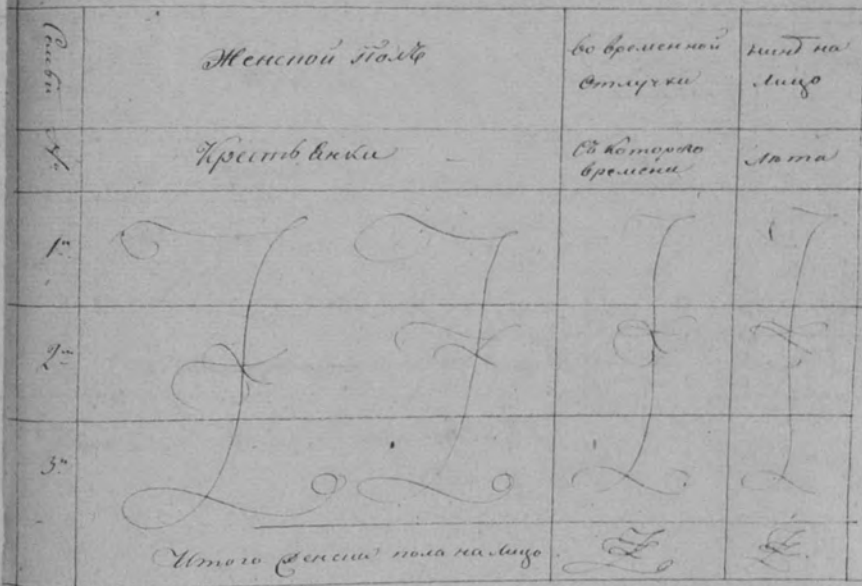 Семьи
№
Женской Полъ
во временной
Отлучки
нынѣ на
Лицо
Крестьянки
Съ которого
времени
Лѣта
1й
2й
3й
Итого Женска пола на Лицо